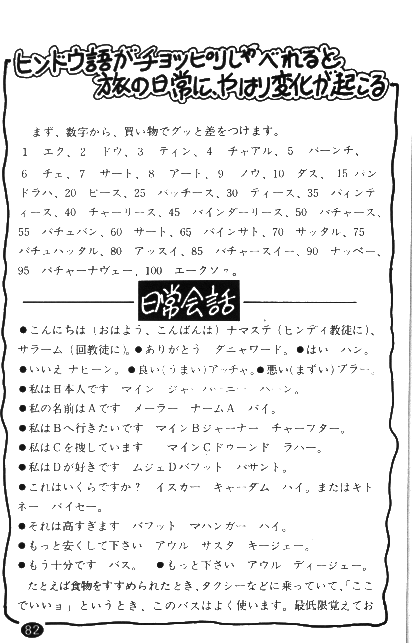 ヒンドウ語がチョッピリしゃべれると、
旅の日常に、やはり変化が起こる
まず、数字から、買い物でグッと差をつけます。
1 エク、2 ドゥ、3 ティン、4 チャアル、5 パーンチ、
6 チェ、7 サート、8 アート、9 ノウ、10 ダス、 15 パン
ドラハ、20 ビース、25 パッチース、30 ティース、35 パィンテ
ィース、40 チャーリース、45 パインダーリース、50 パチャース、
55 パチュパン、60 サート、65 パインサト、70 サッタル、75
パチュハッタル、80 アッスイ、85 パチャースイー、90 ナッベー、
95 パチャーナヴェー、100 エークソゥ。
日常会話
●こんにちは(おはよう、こんばんは)ナマステ(ヒンディ教徒に)、
サラーム(回教徒に)。●ありがとう ダニャワード。●はい ハン。
●いいえ ナヒーン。●良い(うまい)アッチャ。●悪い(まずい)ブラー。
●私は日本人です マイン ジャーパーニー ハーン。
●私の名前はAです メーラー ナームA パイ。
●私はBへ行きたいです マインBジャーナー チャーフター。
●私はCを捜しています マインCドゥーンド ラハー。
●私はDが好きです ムジェDバフット パサント。
●これはいくらですか? イスカー キャーダム ハイ。またはキト
ネー パイセー。
●それは高すぎます バフット マハンガー ハイ。
●もっと安くして下さい アウル サスタ キージェー。
●もう十分です バス。 ●もっと下さい アウル ディージェー。
たとえば食物をすすめられたとき、タクシーなどに乗っていて、「ここ
でいいョ」というとき、このバスはよく使います。最低限覚えてお
82